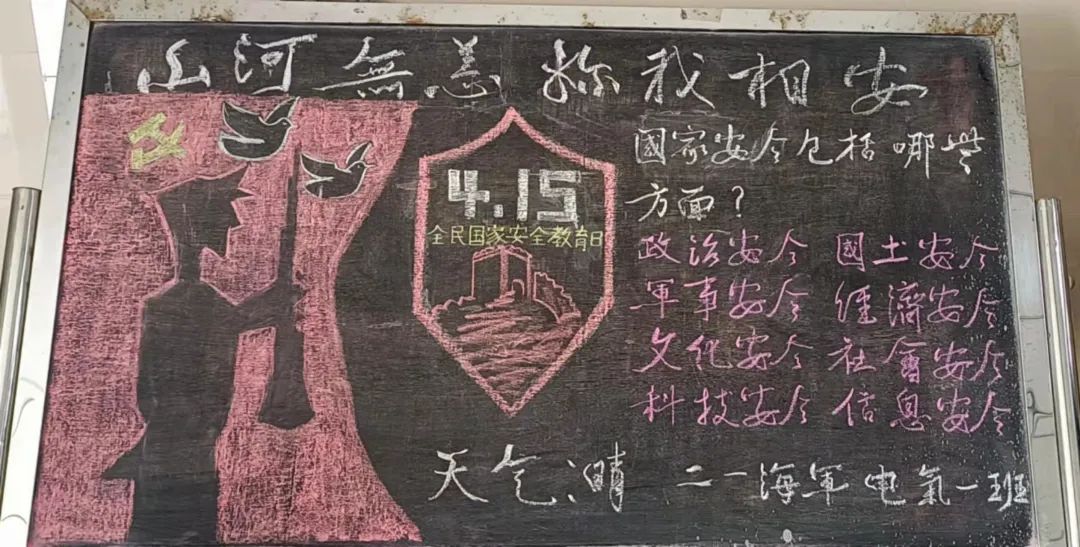 山河無恙 你我相安
4.15
全民国家安全教育日
國家安全包括哪些
方面？
政治安全 國土安全
軍事安全 經濟安全
文化安全 社會安全
科技安全 信息安全
天气:晴 二一海軍电氣一班